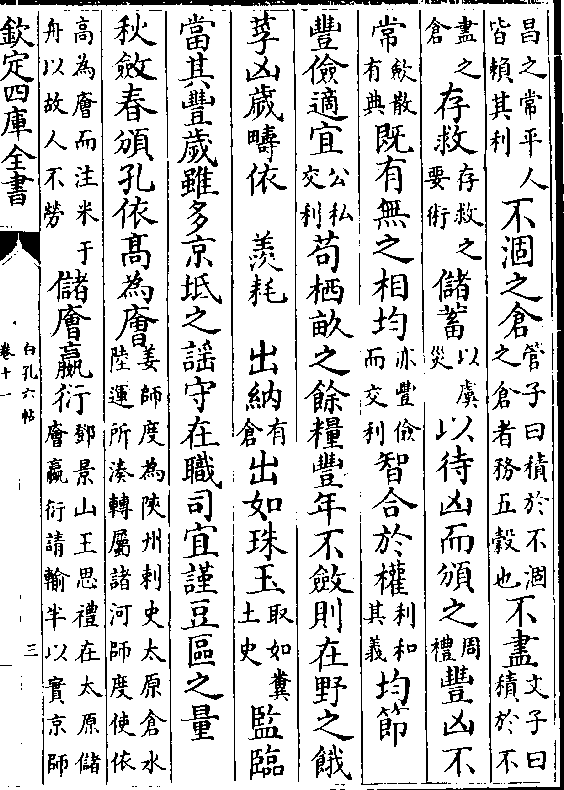 昌之常平人皆賴其利不涸之倉管子曰積於不涸之倉者務五穀也不盡文子曰積於不
盡之倉存救存救之要術儲蓄以虞災以待凶而頒之周禮豐凶不
常斂散有典既有無之相均亦豐儉而交利智合於權利和其義均節
豐儉適宜公私交利苟栖畝之餘糧豐年不斂則在野之餓
莩凶歲疇依 羨耗 出納有倉出如珠玉取如糞土史監臨
當其豐歲雖多京坻之謡守在職司宜謹豆區之量
秋斂春頒孔依髙為廥姜師度為陜州刺史太原倉水陸運所湊轉屬諸河師度使依
高為廥而注米于舟以故人不勞儲廥贏衍鄧景山王思禮在太原儲廥贏衍請輸半以實京師
欽定四庫全書
白孔六帖
卷十一
三